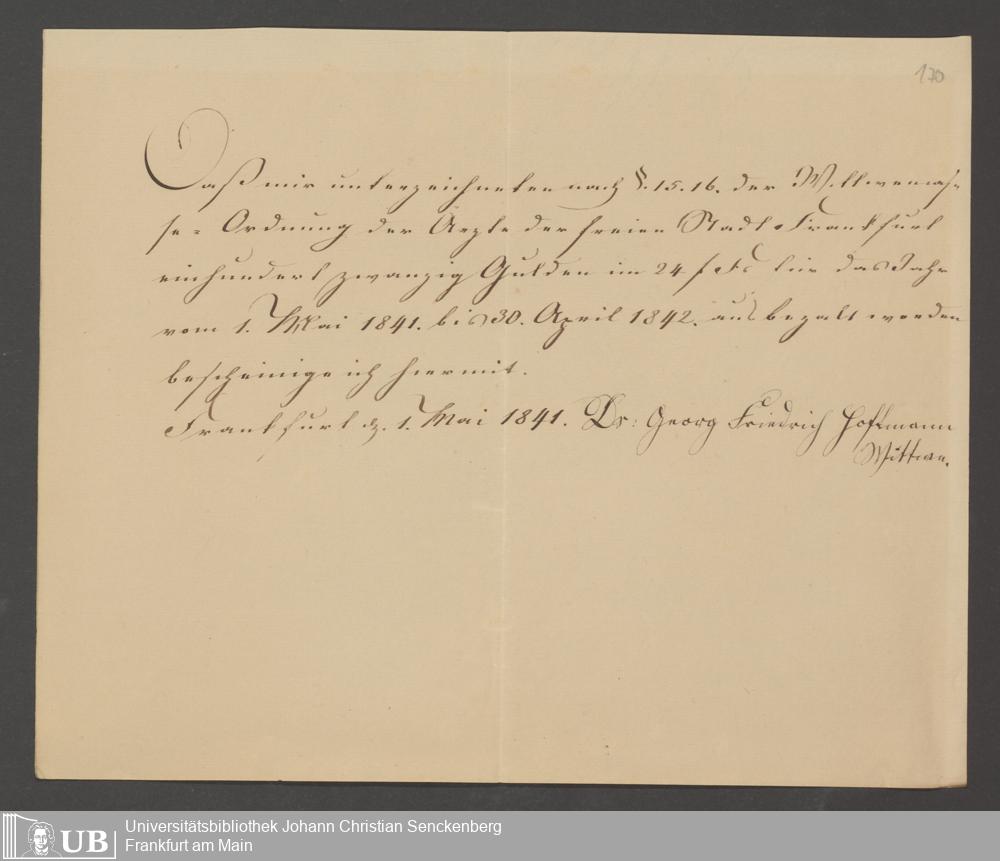 170
Daß mir unterzeichneten nach §. 15. 16. der Wittwencas-
se-Ordnung der Aerzte der freien Stadt Frankfurt
einhundert zwanzig Gulden im 24 f Fs für das Jahr
vom 1. Mai 1841. bis 30. April 1842. ausbezalt worden
bescheinige ich hiermit.
Frankfurt d. 1. Mai 1841. Dr: Georg Friedrich Hoffmann
Wittwe.
UB Universitätsbibliothek Johann Christian Senckenberg
Frankfurt am Main